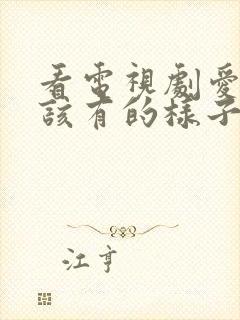 看電視劇愛
該有的樣子
江亨